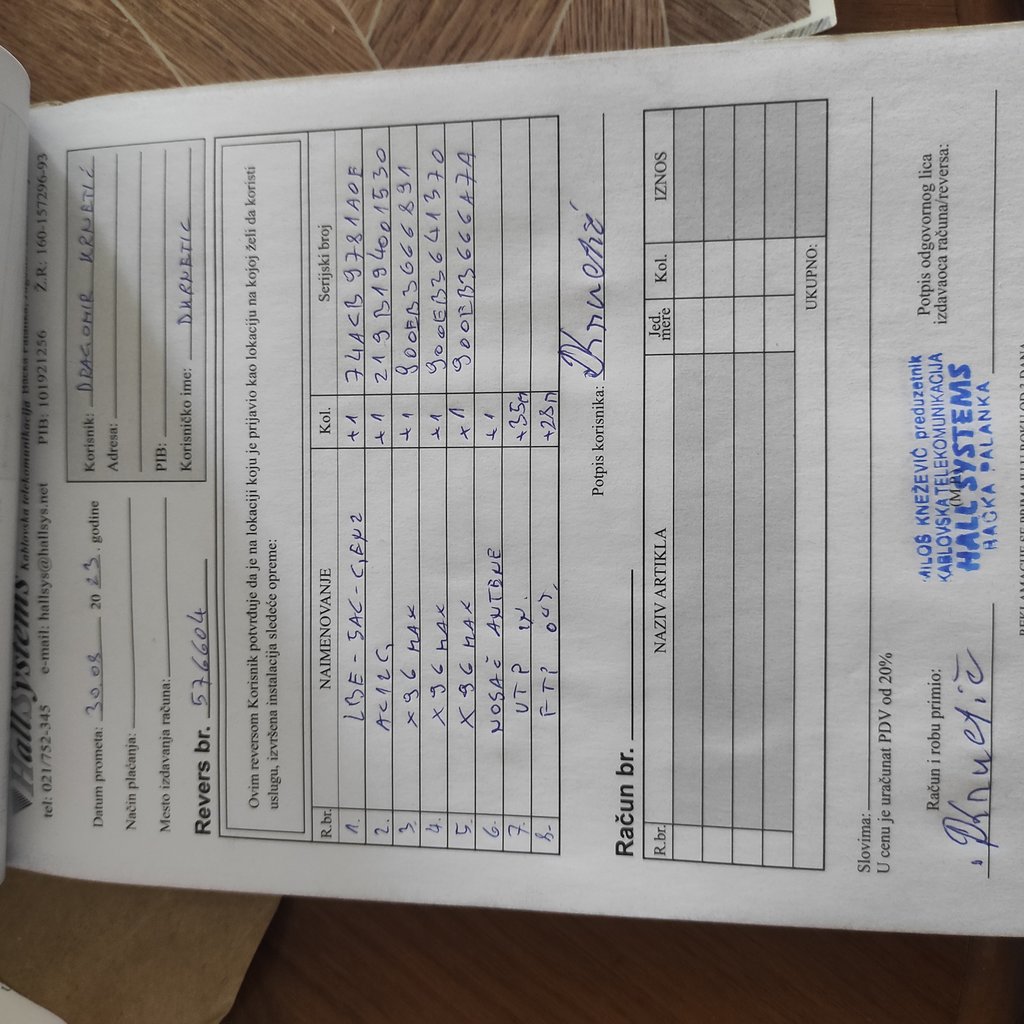 HallSystems Kablovska telekomunikacija
tel: 021/752-345 e-mail: hallsys@hallsys.net PIB: 101921256 Ž.R.: 160-157296-93
Datum prometa: 30.08 2023. godine
Način plaćanja:
Mesto izdavanja računa:
Korisnik: DRAGOMIR
Adresa:
PIB:
Korisničko ime:
Revers br. 576604
Ovim reversom Korisnik potvrđuje da je na lokaciji koju je prijavio kao lokaciju na kojoj želi da koristi
uslugu, izvršena instalacija sledeće opreme:
R.br. NAIMENOVANJE Kol. Serijski broj
1. LBE-5AC-GEN2 +1 74ACB9781A0E
2. AC12G +1 219B194001530
3. X96 MAX +1 900EB3666891
4. X96 MAX +1 900EB3641370
5. X96 MAX +1 900EB366647A
6. NOSAČ ANTENE +1
7. UTP IN. +35m
8. FTP OUT. +28m
Potpis korisnika:
Račun br.
R.br. NAZIV ARTIKLA Jed. mere Kol. IZNOS
UKUPNO:
Slovima:
U cenu je uračunat PDV od 20%
Račun i robu primio:
(M.P.)
Potpis odgovornog lica
izdavaoca računa/reversa:
MILOŠ KNEŽEVIĆ preduzetnik
KABLOVSKA TELEKOMUNIKACIJA
HALL SYSTEMS
BAČKA PALANKA